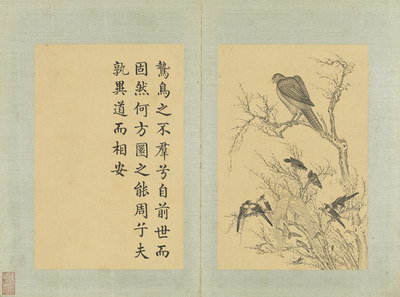 鷙鳥之不羣兮自前世而
固然何方圜之能周兮夫
孰異道而相安